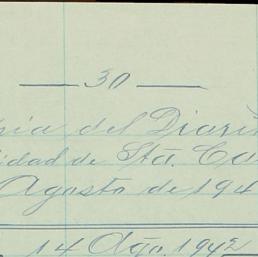 — 30 —
pia del Diario
lidad de Sta. Ca
Agosto de 194
14 Ago. 1942